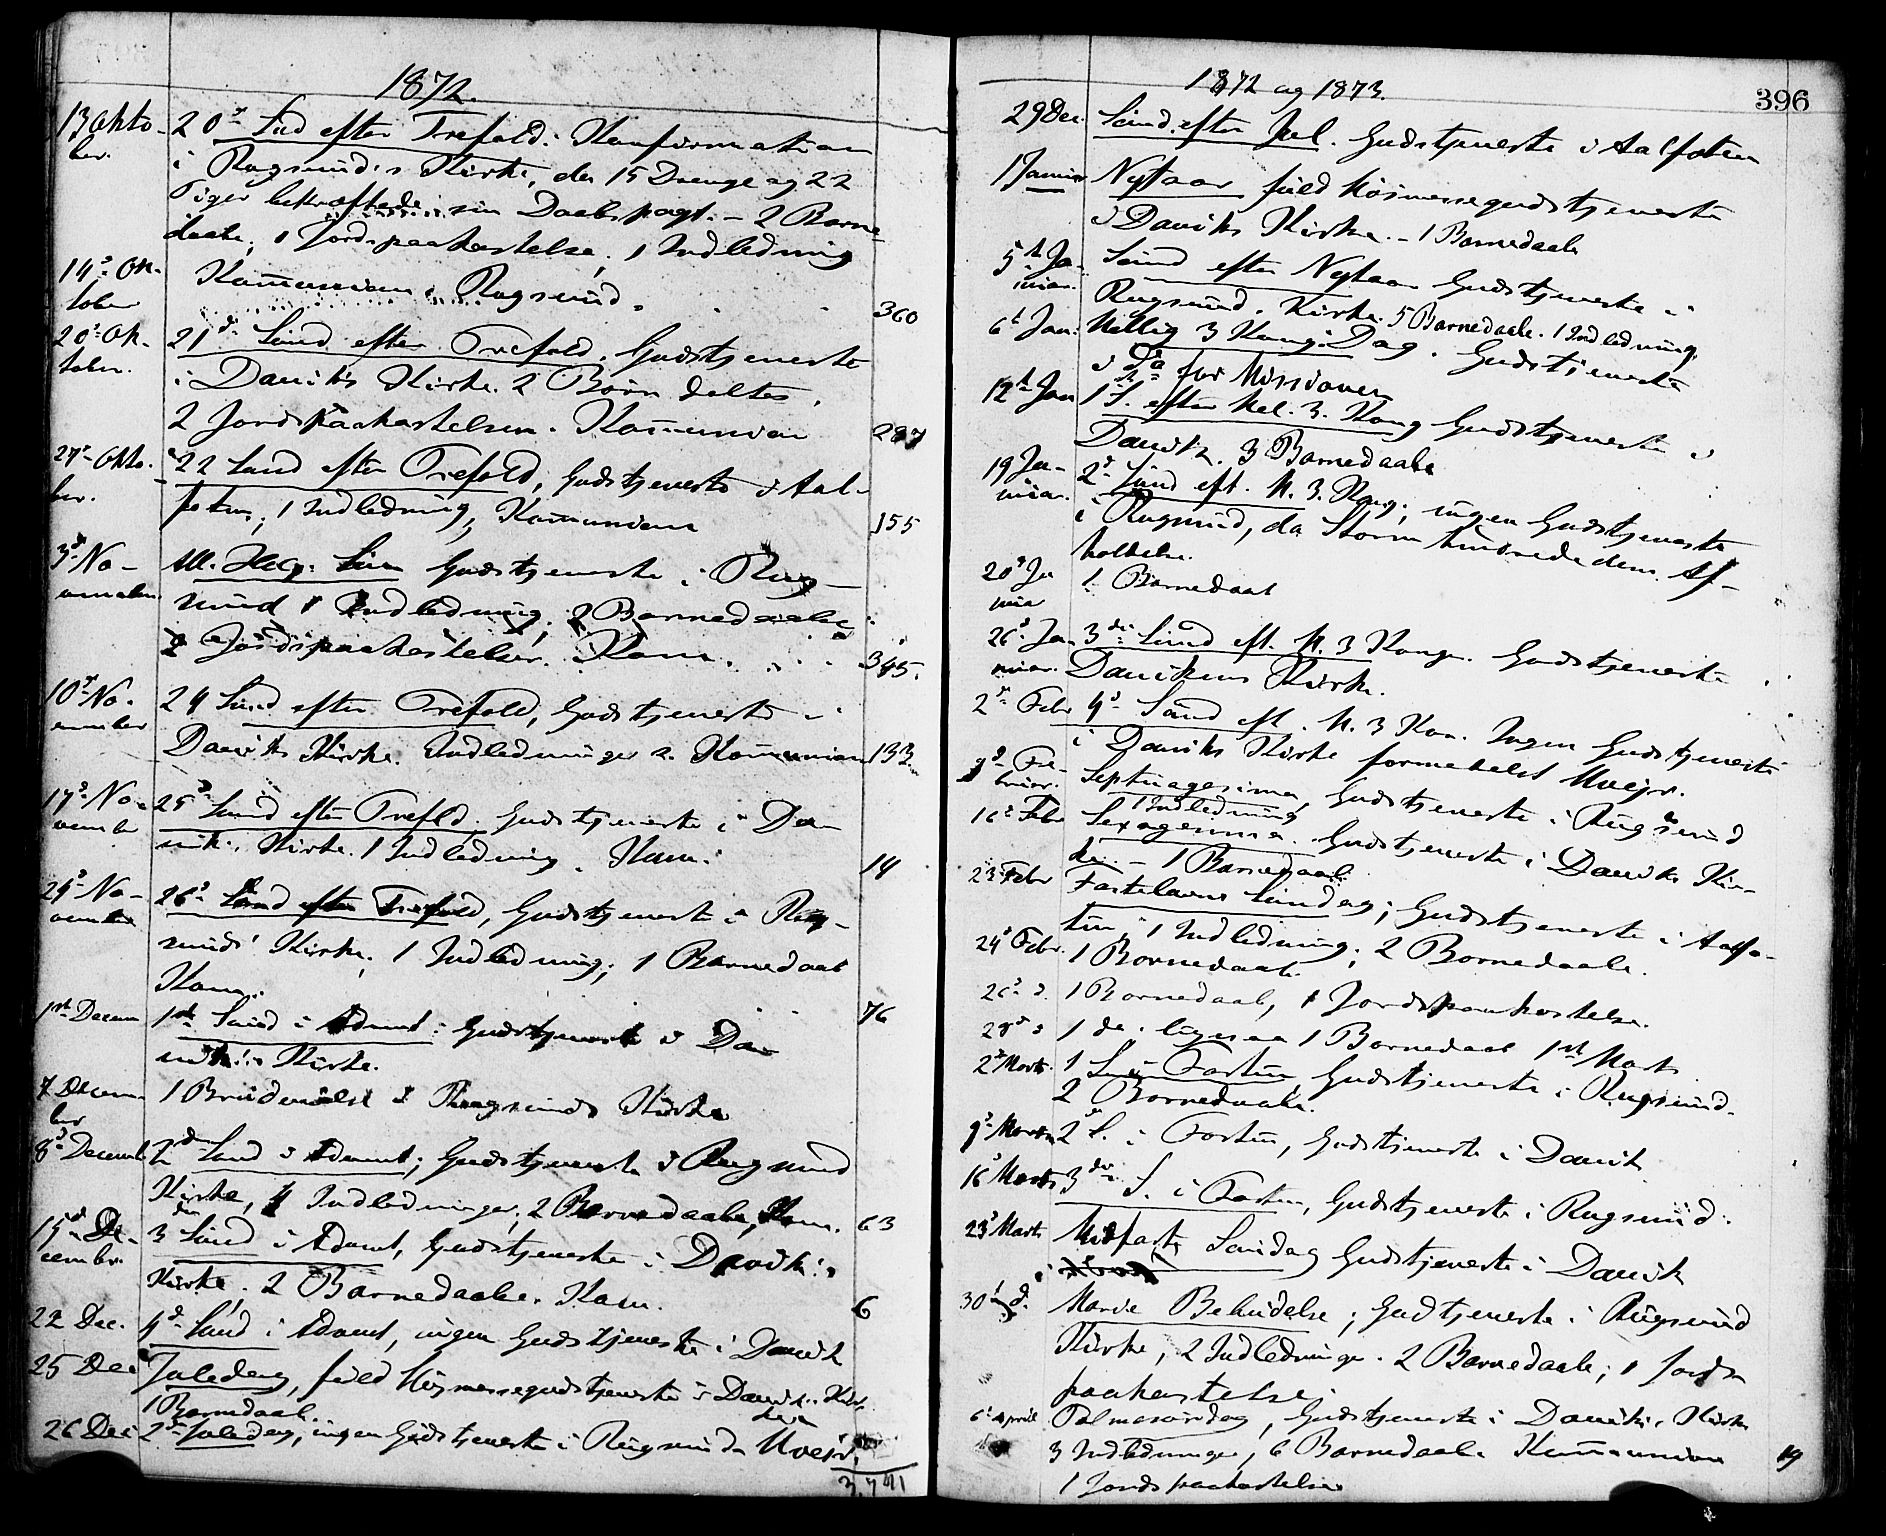 1872.
13 Okto-
ber.
20de Sud efter Trefold. Konfirmation
i Rugsund's Kirke, der 15 Drenge og 22
Piger bekræftede sin Daabspagt. - 2 Barne
daabe, 1 Jordspaakastelse, 1 Indledning
14de Ok-
tober
Kommunion i Rugsund. 360
20de Ok-
tober.
21de Sønd. efter Trefold. Gudstjeneste
i Daviks Kirke. 2 Børn døltes,
2 Jordspaakastelser. Kommunion 287
27de Okto-
ber.
22 Sønd efter Trefold, Gudstjeneste i Aal-
foten, 1 Indledning, Kommunion 155
3de No-
vember
All. Helg. Søn Gudstjeneste i Rug-
sund 1 Indledning, 2 Barnedaabe
2 Jordspaakastelser. Kom. 345.
10de No-
vember
24 Sønd efter Trefold, Gudstjeneste i
Daviks Kirke. Indledninger 2. Kommunion 133
17de No-
vember
25de Sønd efter Trefold. Gudstjeneste i Da-
viks Kirke. 1 Indledning. Kom. 14
24de No-
vember
26de Sønd efter Trefold, Gudstjeneste i Rug-
sunds Kirke, 1 Indledning; 1 Barnedaab
Kom. 76
1ste Decem
1ste Sønd i Advent: Gudstjeneste i Da-
viks Kirke.
7 Decem-
ber
1 Brudevielse i Rugsunds Kirke
8de Decemb
2den Sønd i Advent; Gudstjeneste i Rugsund
Kirke, 4 Indledninger, 2 Barnedaabe, Kom. 63
15de De-
cember.
3die Sønd i Advent, Gudstjeneste i Daviks
Kirke. 2 Barnedaabe. Kom. 6
22 Dec.
4de Sønd i Advent, ingen Gudstjeneste i Davik
25 Dec
Juledag, fuld Høimessegudstjeneste i Daviks Kir-
ke
1 Barnedaab.
26 Dec
2den Juledag, ingen Gudstjeneste i Rugsund Uveir.
3,741
1872 og 1873.
396
29 Dec.
Sønd. efter Jul. Gudstjeneste i Aalfoten
1 Januar
Nytaar fuld Høimessegudstjeneste
i Daviks Kirke. - 1 Barnedaab
5te Ja-
nuar.
Sønd efter Nytaar Gudstjeneste i
Rugsund. Kirke. 5 Barnedaabe. 1 Indledning.
6te Jan.
Hellig 3 Kongr Dag. Gudstjeneste
i Do for Missionen
12te Jan
1 S. efter Hel. 3. Kong Gudstjeneste i
Davik. 3 Barnedaabe
19 Ja-
nuar.
2den Sønd eft. H. 3. Kong, ingen Gudstjeneste
i Rugsund, da Storm hindrede dens Af-
holdelse.
20de Ja
nua
1 Barnedaab
26de Ja-
nuar.
3die Sønd eft. H. 3 Konge. Gudstjeneste
Davikens Kirke.
2den Febr
4de Sønd eft. H. 3 Kon. Ingen Gudstjeneste
i Daviks Kirke formedelst Uvejr.
9de Fe-
bruar.
Septuagesima, Gudstjeneste i Rugsund
1 Indledning
16de Febr
Sexagesima. Gudstjeneste i Daviks Kir-
ke. - 1 Barnedaab
23 Febr
Fastelavns Søndag; Gudstjeneste i Aalfo-
ten, 1 Indledning; 2 Barnedaabe.
24de Febr.
1 Barnedaab.
26de d.
1 Barnedaab, 1 Jordspaakastelse.
28de d
1 do. ligesaa 1 Barnedaab 1ste Marts
2den Marts.
1 S. i Fasten, Gudstjeneste i Rugsund.
2 Barnedaabe.
9de Marts
2den S. i Fasten, Gudstjeneste i Davik
16de Marts
3die S. i Fasten, Gudstjeneste i Rugsund.
23de Marts
Midfaste Søndag Gudstjeneste i Davik
30te d.
Marie Bebudelse; Gudtjeneste i Rugsund
Kirke, 2 Indledninge. 2 Barnedaab; 1 Jords
paakastelse;
6te April
Palmesøndag, Gudstjeneste i Daviks Kirke
3 Indledninger, 6 Barnedaabe Kommunion 19
1 Jordspaakastelse